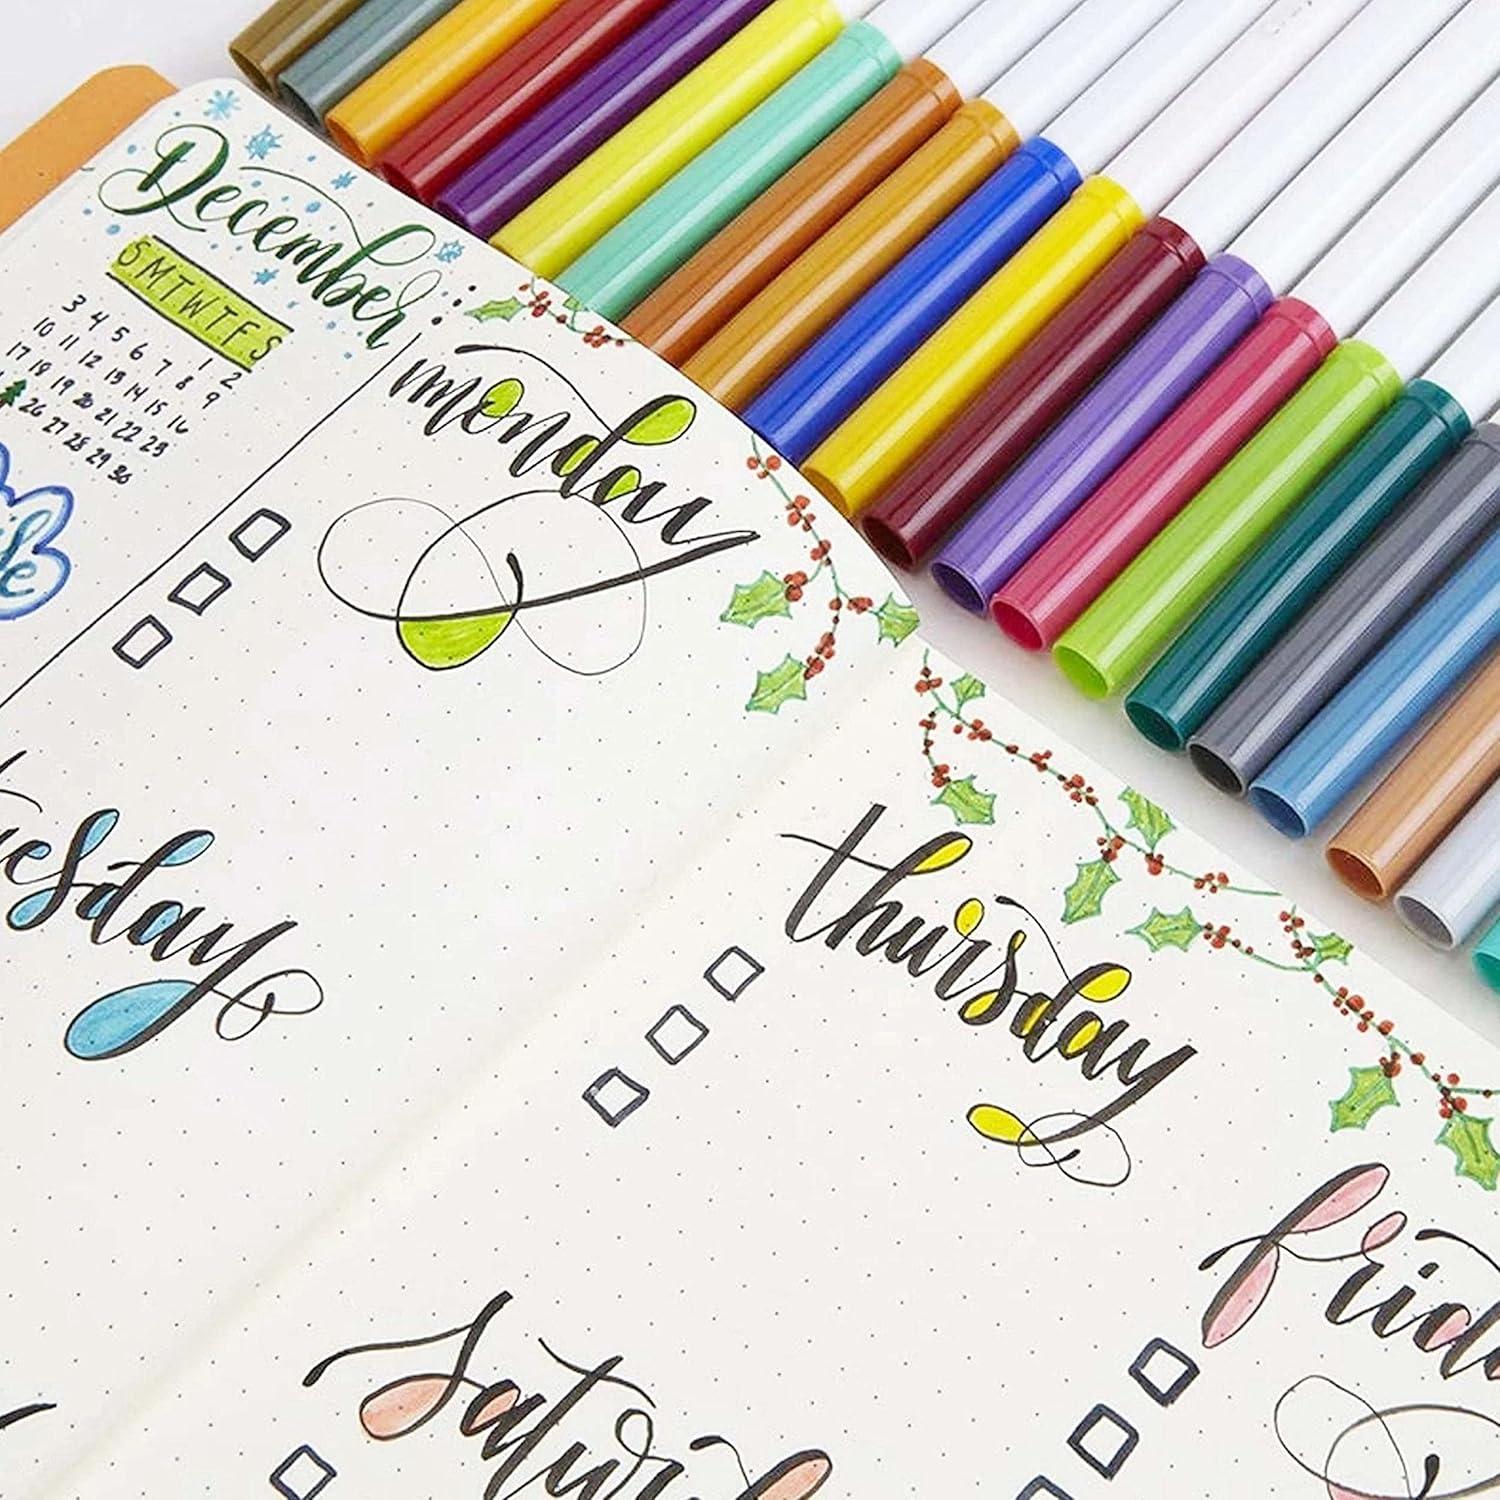 December
S M T W T F S
1 2
3 4 5 6 7 8 9
10 11 12 13 14 15 16
17 18 19 20 21 22 23
26 27 28 29 30
monday
uesday
thursday
frid
satur